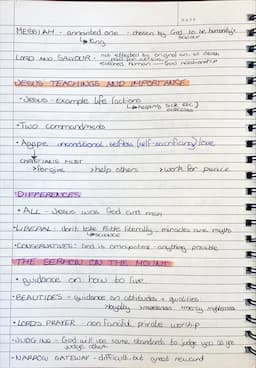 DATE
MESSIAH - annointed one - chosen by God to be humanity's saviour
↳ King
LORD AND SAVIOUR - not affected by original sin, at death
paid for
restored human — God relationship
JESUS TEACHINGS AND IMPORTANCE
• Jesus - example life (actions
↳ helping sick etc)
outcasts
• Two commandments
• Agape unconditional selfless (self-sacrificing) love
CHRISTIANS MUST
> forgive > help others > work for peace
DIFFERENCES
• ALL - Jesus was God and man
• LIBERAL - don't take Bible literally - miracles are myths
↳ SCIENCE
• CONSERVATIVES: God is omnipotent - anything possible
THE SERMON ON THE MOUNT
• guidance on how to live
• BEAUTIDES - guidance on attitudes + qualities
• LORDS PRAYER - non fanciful, private worship
• JUDGING - God will use same standards to judge you as you
judge others
• NARROW GATEWAY - difficult but great reward